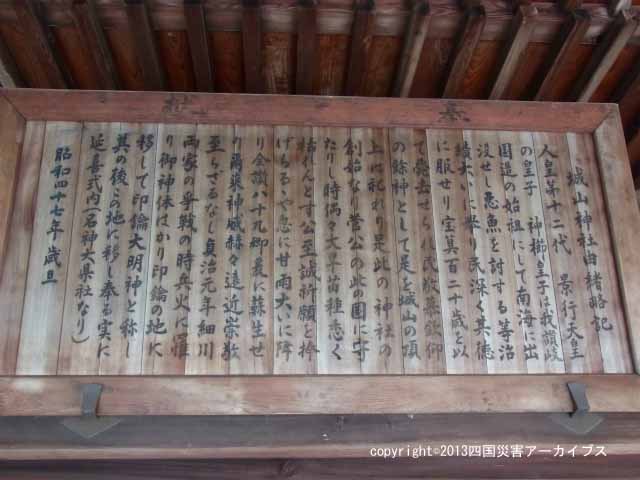 奉
献
城山神社由緒略記
人皇第十二代 景行天皇
の皇子 神櫛皇子は我讃岐
国造の始祖にして南海に出
没せし悪魚を討する等治
績大いに挙り民深く其徳
に服せり宝算百二十歳を以
て薨去せられ民敬慕欽仰
の餘神として是を城山の頂
上に祀れり是此の神社の
創始なり菅公の此の国に守
たりし時偶々大旱苗種悉く
枯れんとす公至誠祈願を捧
げらるゝや急に甘雨大いに降
り全讃八十九郷爰に蘇生せ
り爾来神威赫々遠近崇敬
至らざるなし貞治元年細川
両家の争戦の時兵火に罹
り御神体はかり印鑰の地に
移して印鑰大明神と称し
其の後この地に移し奉る実に
延喜式内(名神大県社なり)
昭和四十七年 歳旦
copyright©2013四国災害アーカイブス